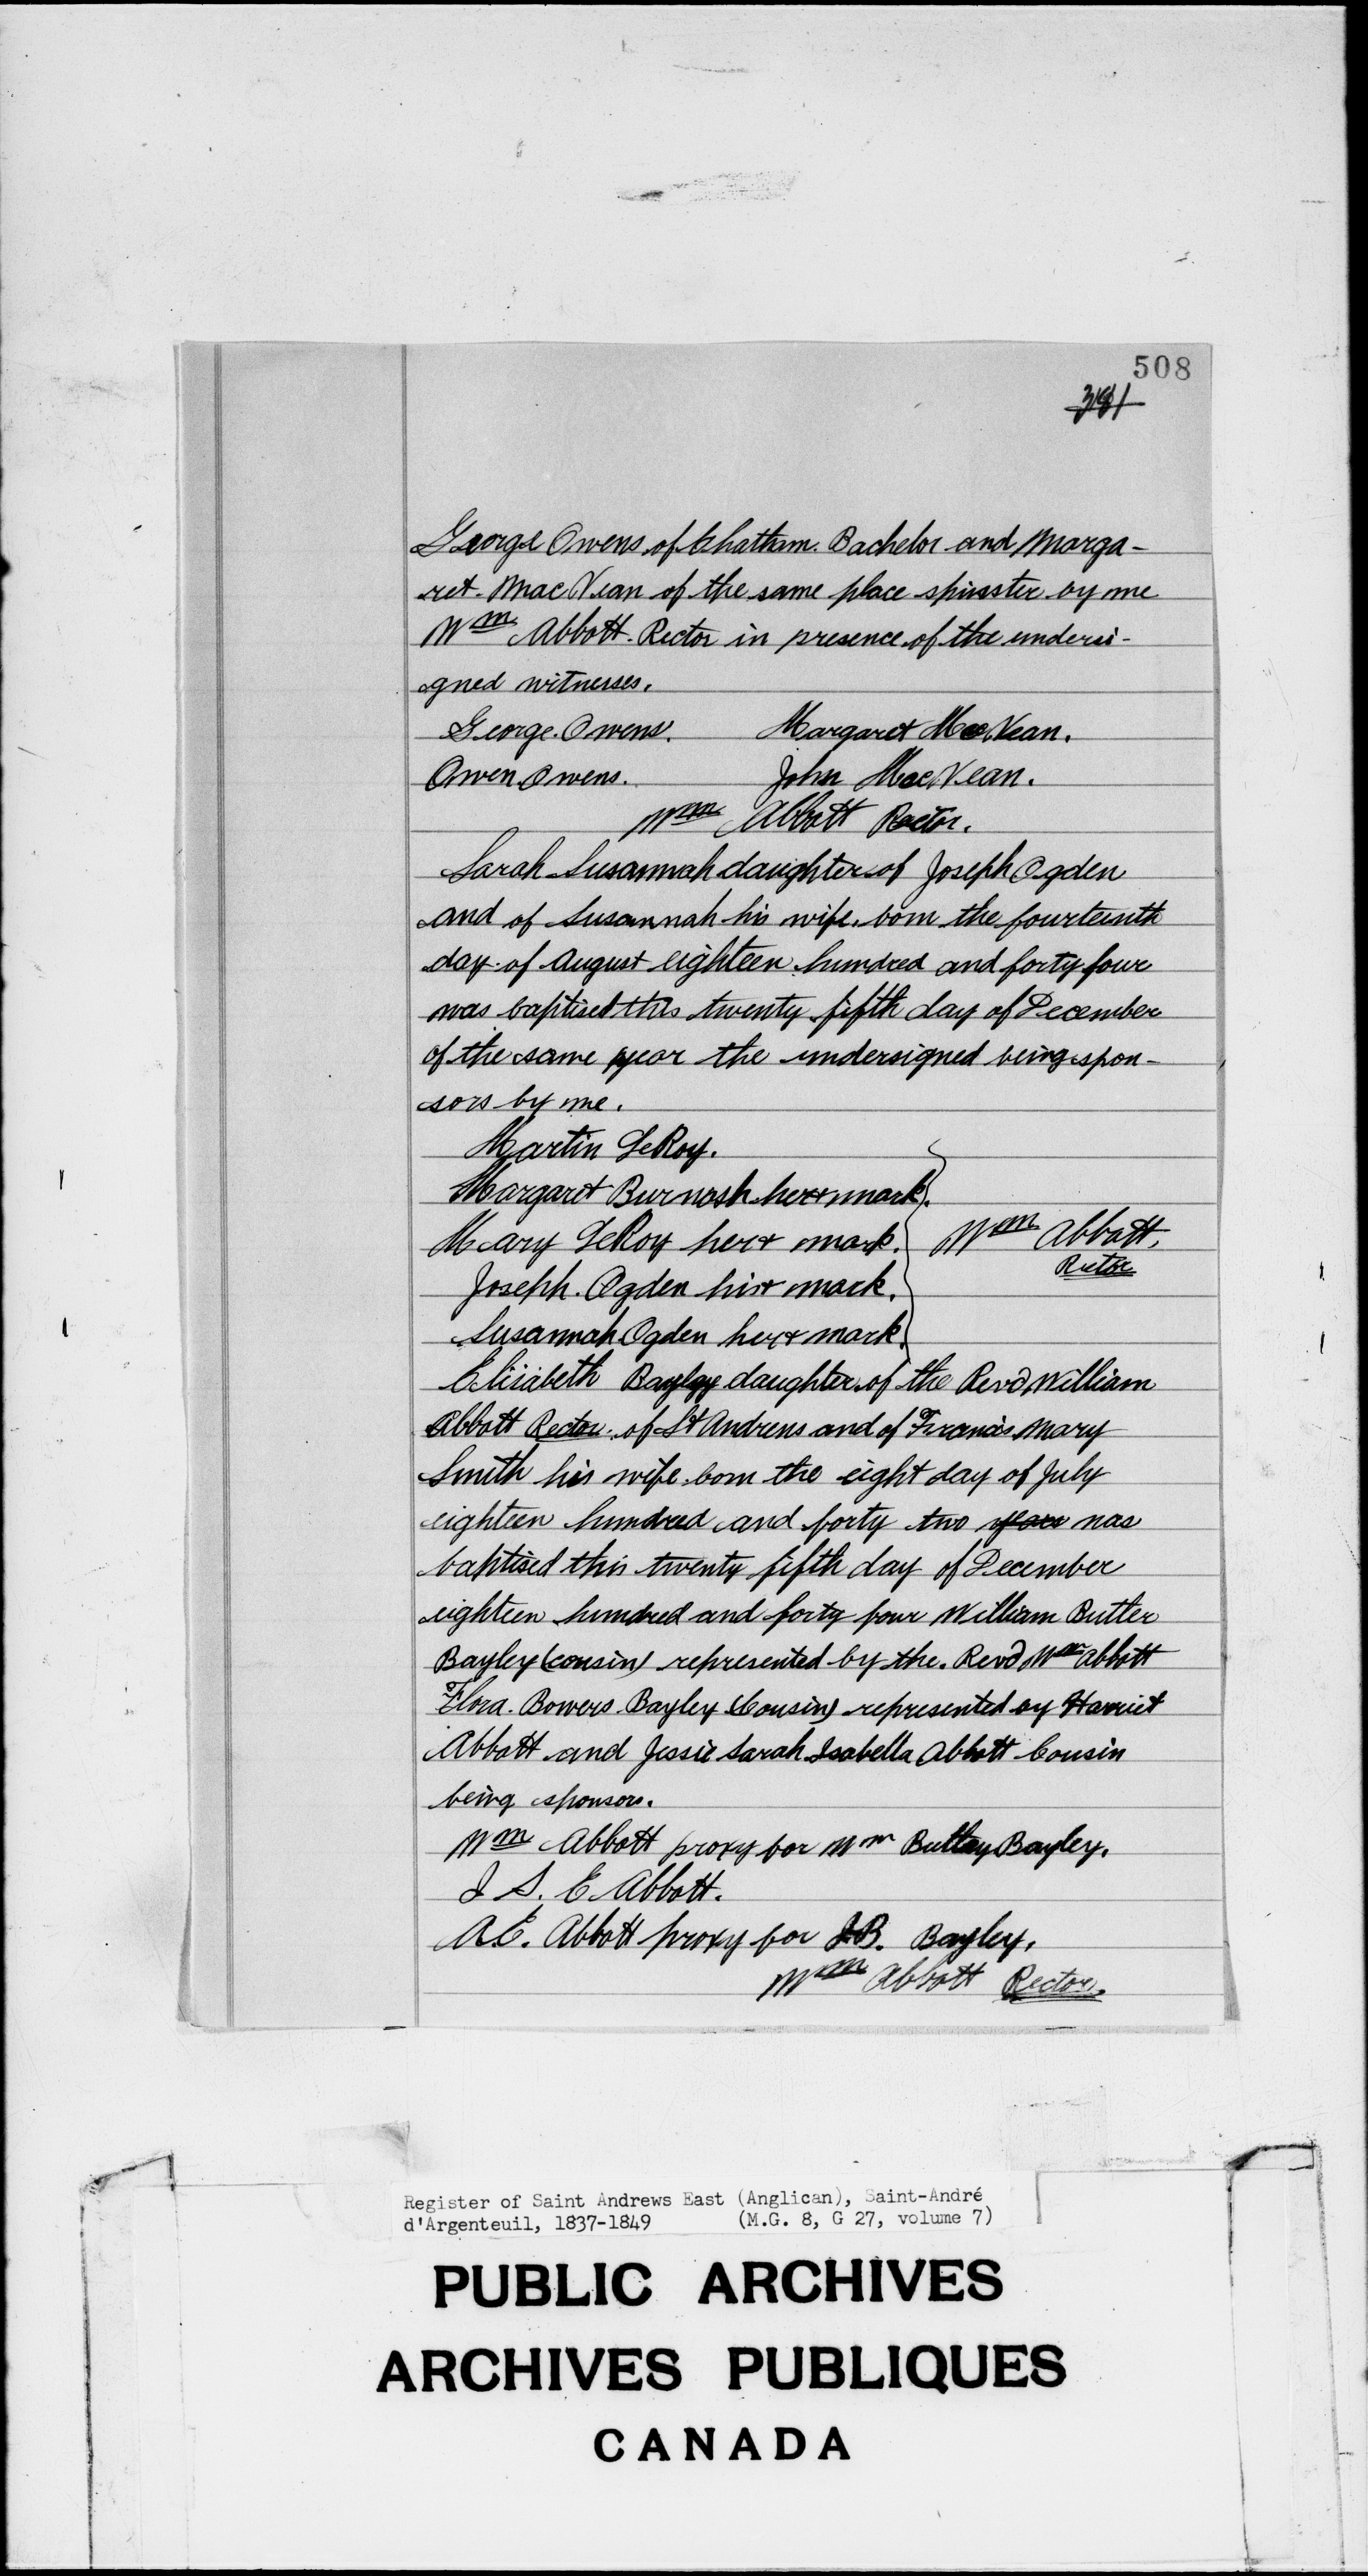 508
381
George Owens of Chatham. Bachelor and Marga-
ret. MacVean of the same place spinster by me
Wm Abbott. Rector in presence of the undersi-
gned witnesses.
George. Owens. Margaret MacVean.
Owen Owens. John MacVean.
Wm Abbott Rector.
Sarah Susannah daughter of Joseph Ogden
and of Susannah his wife. born the fourteenth
day of August eighteen hundred and forty four
was baptised this twenty fifth day of December
of the same year the undersigned being spon-
sors by me.
Martin LeRoy.
Margaret Burnash her x mark.
Mary LeRoy her x mark. Wm Abbott,
Rector
Joseph. Ogden his x mark.
Susannah Ogden her x mark.
Elisabeth Bayley daughter of the Revd William
Abbott Rector. of St Andrews and of Francis Mary
Smith his wife born the eight day of July
eighteen hundred and forty two year was
baptised this twenty fifth day of December
eighteen hundred and forty four William Butler
Bayley (cousin) represented by the. Revd Wm Abbott
Flora. Bowers Bayley (Cousin) represented by Harriet
Abbott and Jessie Sarah Isabella Abbott Cousin
being sponsors.
Wm Abbott proxy for Wm Butley Bayley.
J S. E Abbott.
A.E. Abbott proxy for J.B. Bayley.
Wm Abbott Rector.
Register of Saint Andrews East (Anglican), Saint-André
d'Argenteuil, 1837-1849 (M.G. 8, G 27, volume 7)
PUBLIC ARCHIVES
ARCHIVES PUBLIQUES
CANADA